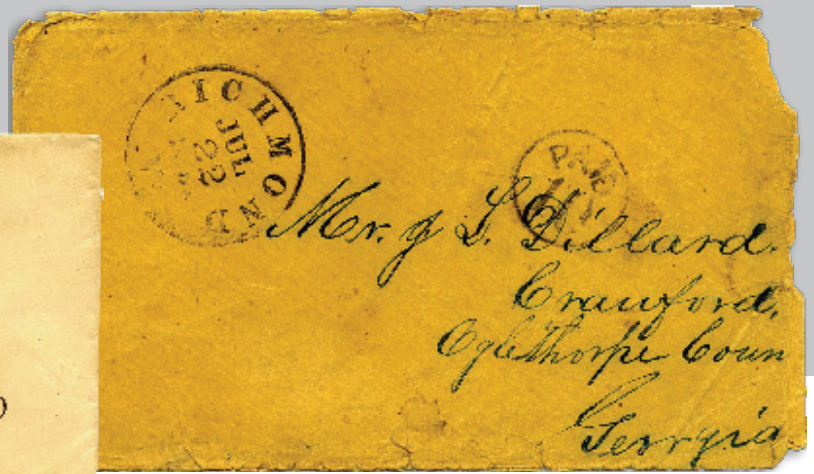 RICHMOND
JUL
22
PAID
Mr. J L. Dillard.
Crawford,
Oglethorpe Coun
Georgia